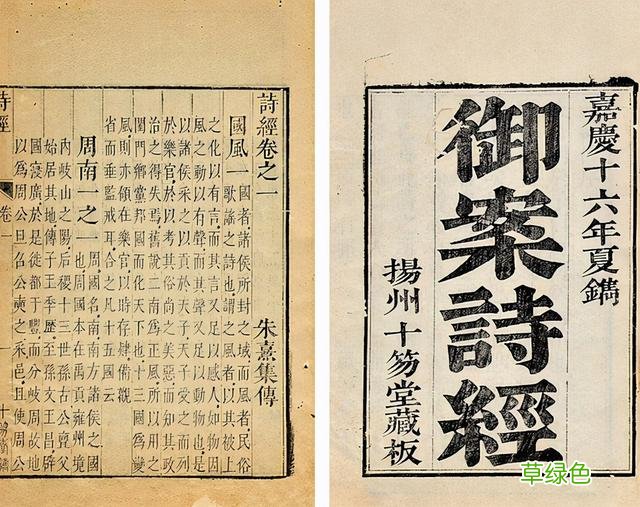 嘉慶十六年夏鐫
御案詩經
揚州十笏堂藏板
詩經卷之一
朱熹集傳
國風一
國者諸侯所封之域而風者民俗
歌謠之詩也謂之風者以其被上
之化以有言而其言又足以感人如物因
風之動以有聲而其聲又足以動物也是
以諸侯采之以貢於天子天子受之而列
於樂官於以考其俗尚之美惡而知其政
治之得失焉舊說二南為正風所以用之
閨門鄉黨邦國而化天下也十三國為變
風則亦領在樂官以時存肄備觀
省而垂監戒耳合之凡十五國云
周南一之一
周國名南南方諸侯之國
也周國本在禹貢雍州境
內岐山之陽后稷十三世孫古公亶父
始居其地傳子王季歷至孫文王昌辟
國寖廣於是徙都于豐而分岐周故地
以為周公旦召公奭之采邑且使周公
詩經
卷一
一
草绿色